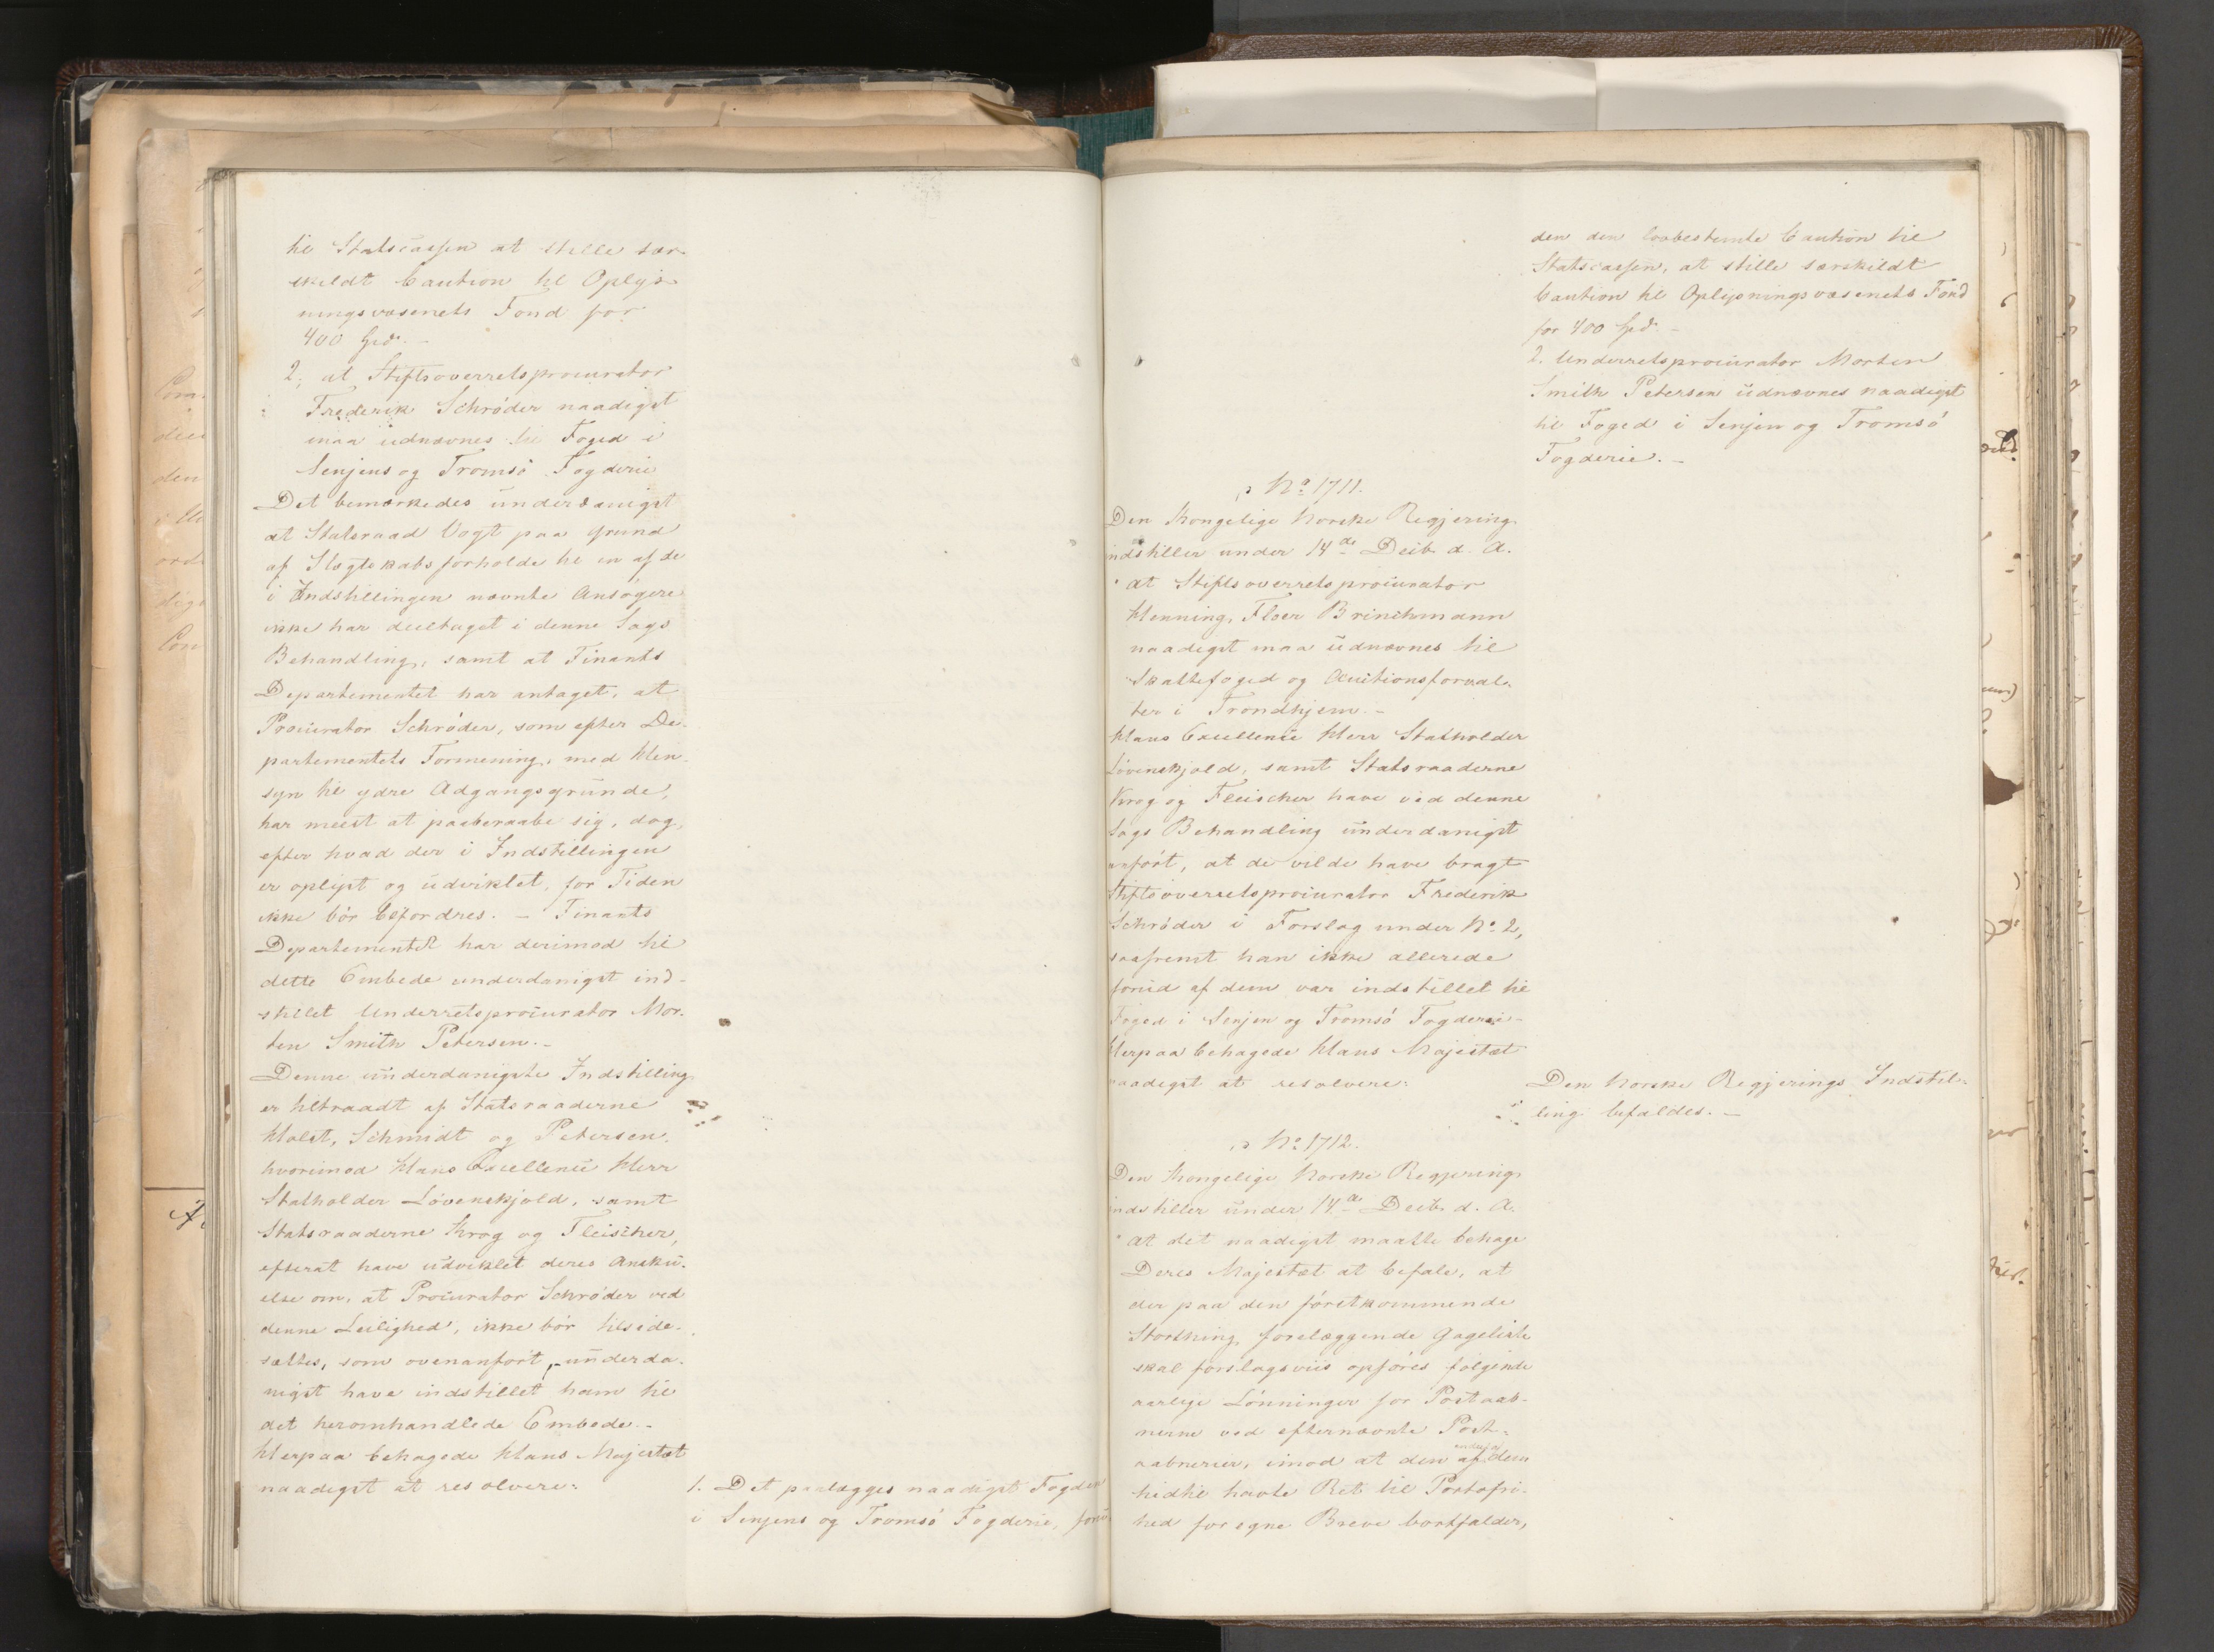 til Statscassen at stille sær-
skildt Caution til Oplys-
ningsvæsenets Fond for
400 Spd. -
2, at Stiftsoverretsprocurator
Frederik Schrøder naadigst
maa udnævnes til Foged i
Senjens og Tromsø Fogderie
Det bemærkedes underdanigst
at Statsraad Vogt paa Grund
af Slægtskabsforholde til en af de
i Indstillingen nævnte Ansøgere
ikke har deeltaget i denne Sags
Behandling, samt at Finants
Departementet har antaget, at
Procurator Schrøder, som efter De-
partementets Formening, med Hen-
syn til ydre Adgangsgrunde,
har meest at paaberaabe sig, dog,
efter hvad der i Indstillingen
er oplyst og udviklet, for Tiden
ikke bør befordres. - Finants
Departementet har derimod til
dette Embede underdanigst ind-
stilet Underretsprocurator Mor-
ten Smith Petersen. -
Denne underdanigste Indstilling
er tiltraadt af Statsraaderne
Holst, Schmidt og Petersen,
hvorimod Hans Excellence Herr
Statholder Løvenskjold, samt
Statsraaderne Krog og Fleischer,
efterat have udviklet deres Ansku-
else om, at Procurator Schrøder ved
denne Leilighed, ikke bør tilside-
sættes, som ovenanført, underda-
nigst have indstillet ham til
det heromhandlede Embede. -
Herpaa behagede Hans Majestæt
naadigst at resolvere:
1. Det paalægges naadigst Fogden
i Senjens og Tromsø Fogderie, foru-
den den lovbestemte Caution til
Statscassen, at stille særskildt
Caution til Oplysningsvæsenets Fond
for 400 Spd. -
2. Underretsprocurator Morten
Smith Petersen udnævnes naadigst
til Foged i Senjen og Tromsø
Fogderie. -
No 1711.
Den Kongelige Norske Regjering
indstiller under 14de Decbr d. A.
" at Stiftsoverretsprocurator
Henning Floer Brinchmann
naadigst maa udnævnes til
Skattefoged og Auctionsforval-
ter i Trondhjem. -
Hans Excellence Herr Statholder
Løvenskjold, samt Statsraaderne
Krog og Fleischer have ved denne
Sags Behandling underdanigst
anført, at de vilde have bragt
Stiftsoverretsprocurator Frederik
Schrøder i Forslag under No 2,
saafremt han ikke allerede
forud af dem var indstillet til
Foged i Senjen og Tromsø Fogderie -
Herpaa behagede Hans Majestæt
naadigst at resolvere:
Den Norske Regjerings Indstil-
ling bifaldes. -
No 1712.
Den Kongelige Norske Regjering
indstiller under 14de Decbr d. A.
" at det naadigst maatte behage
Deres Majestæt at befale, at
der paa den førstkommende
Storthing forelæggende Gageliste
skal forslagsviis opføres følgende
aarlige Lønninger for Postaab-
nerne ved efternævnte Post-
aabnerier, imod at den af dem
hidtil havte Ret til Portofri-
hed for egne Breve bortfalder,